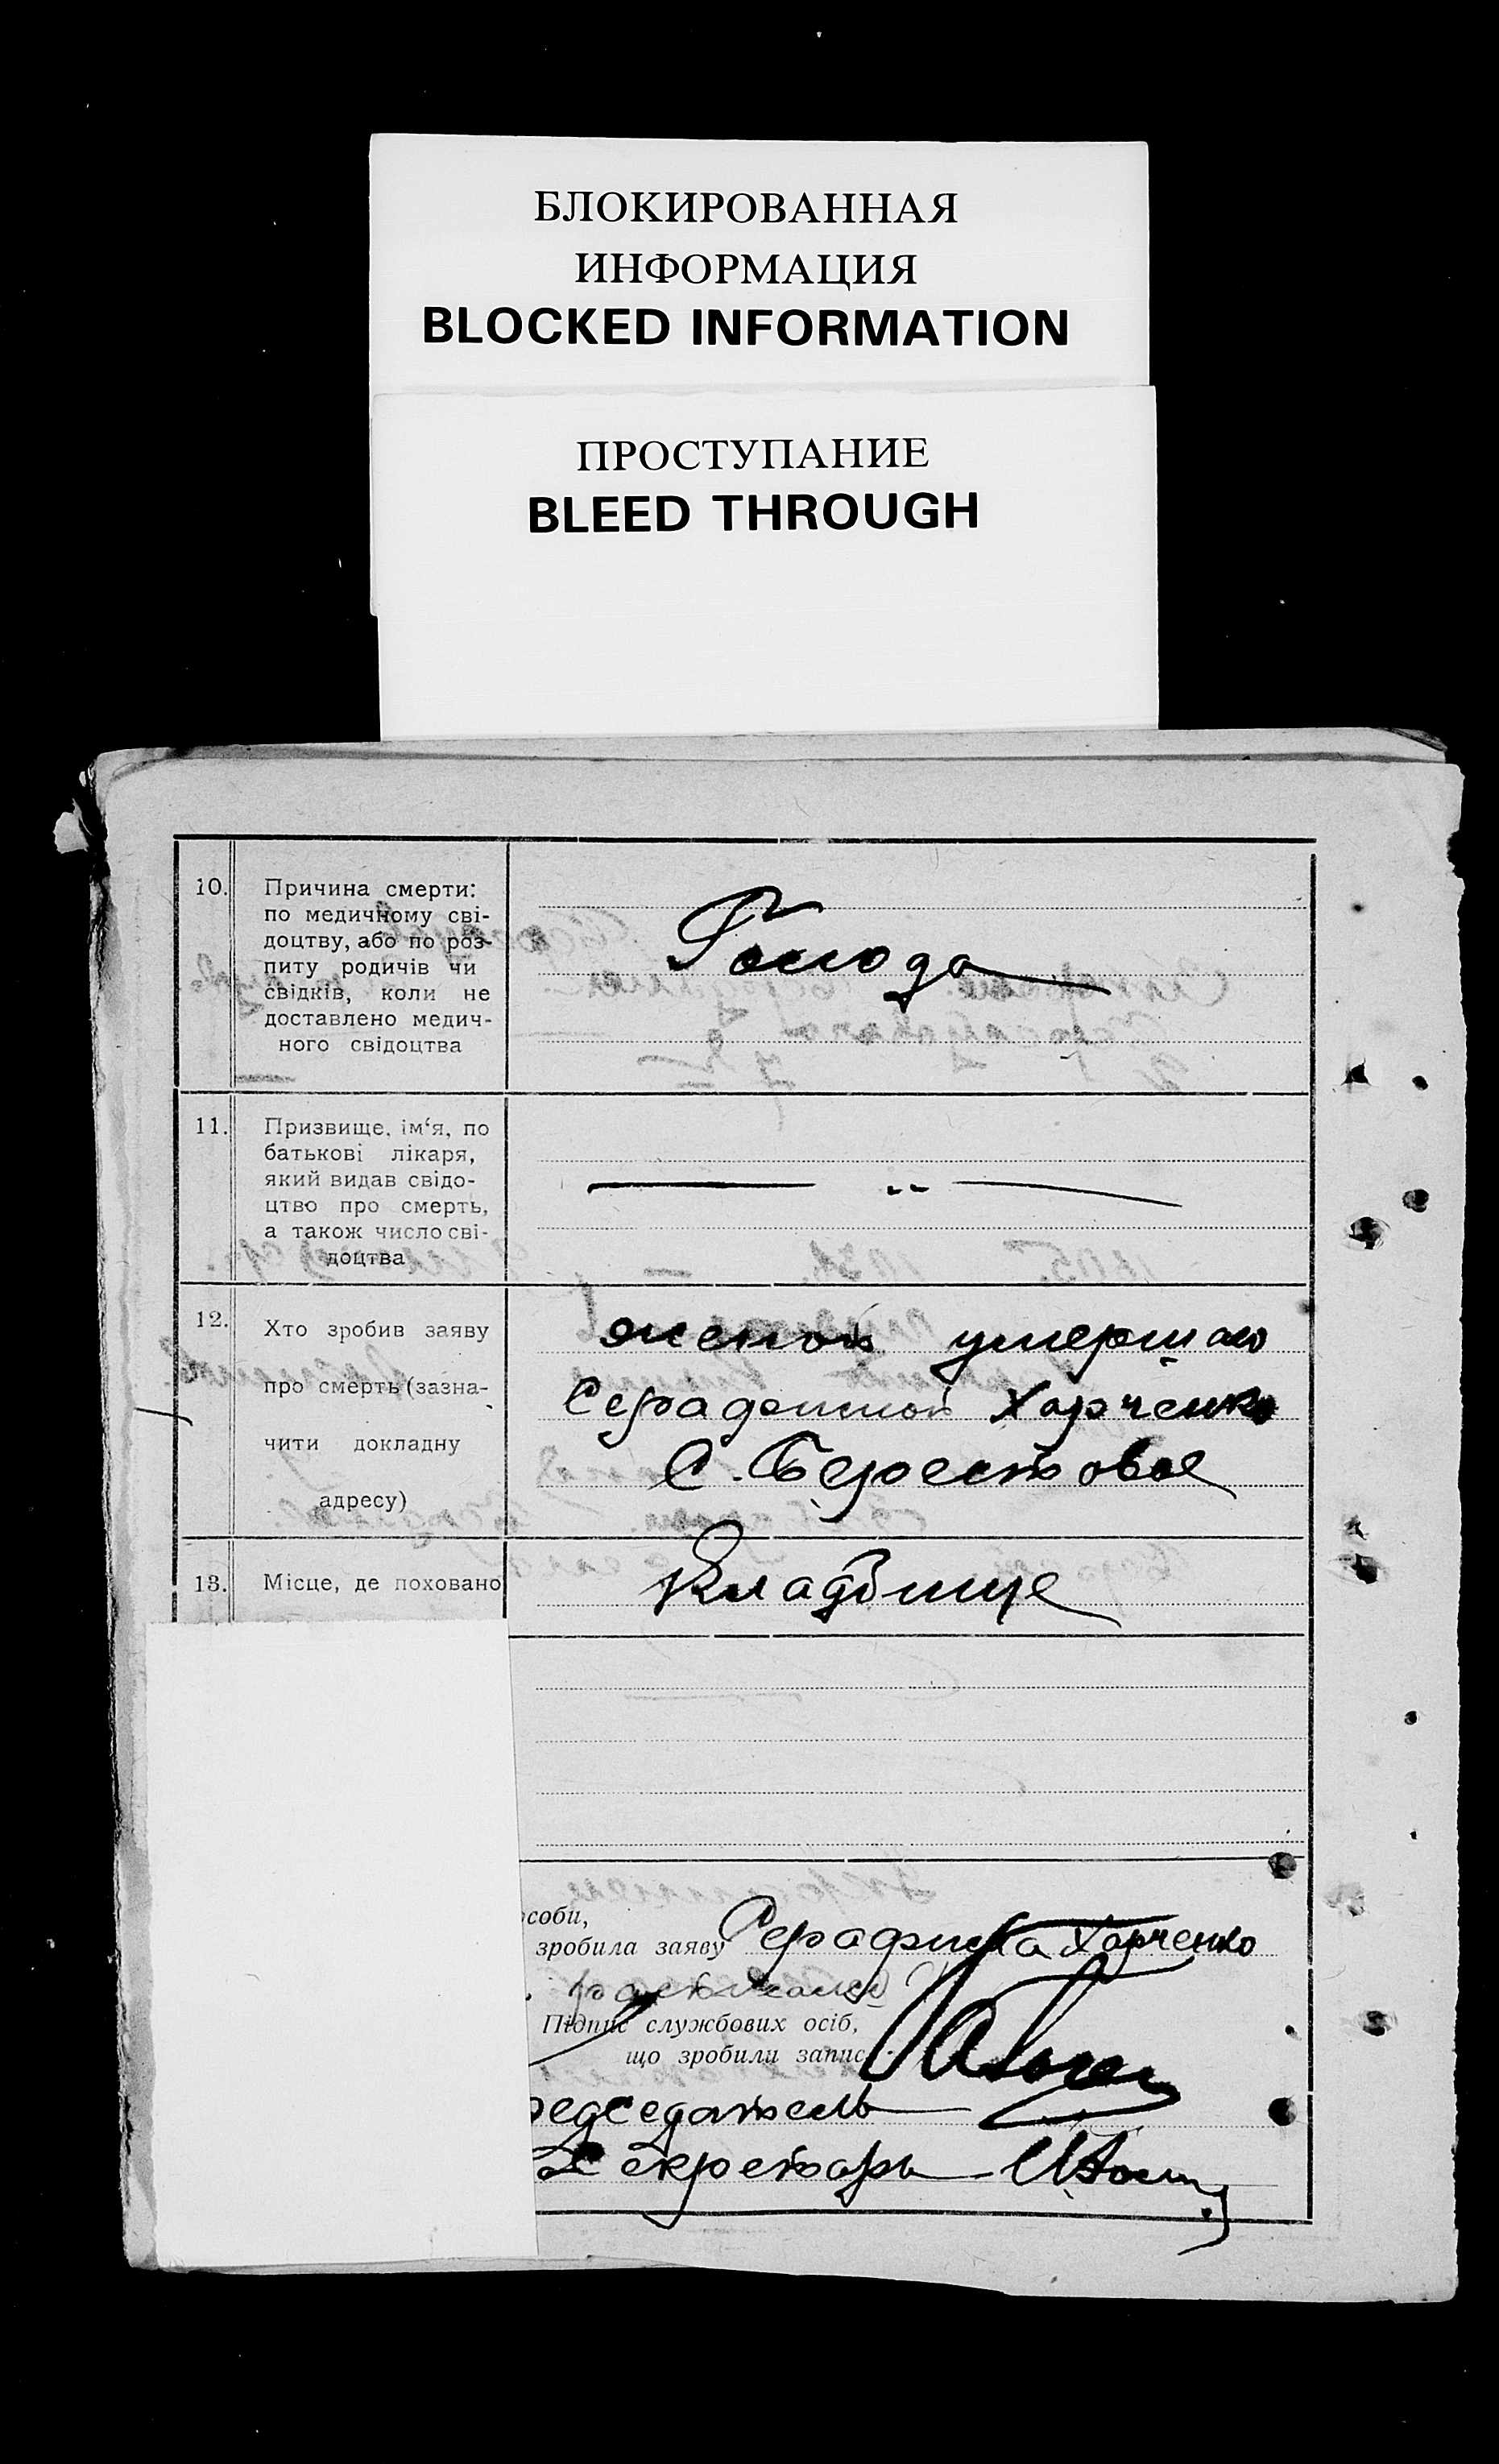 БЛОКИРОВАННАЯ
ИНФОРМАЦИЯ
BLOCKED INFORMATION
ПРОСТУПАНИЕ
BLEED THROUGH
10.
Причина смерти:
по медичному сві-
доцтву, або по роз-
питу родичів чи
свідків, коли не
доставлено медич-
ного свідоцтва
Голода
11.
Призвище, ім‘я, по
батькові лікаря,
який видав свідо-
цтво про смерть,
а також число сві-
доцтва
12.
Хто зробив заяву
про смерть (зазна-
чити докладну
адресу)
женой умершаго
Харченко
С. Берестовое
13.
Місце, де поховано
Кладбище
особи,
зробила заяву Серафима Харченко
Підпис службових осіб,
що зробили запис
редседатель
Секретарь